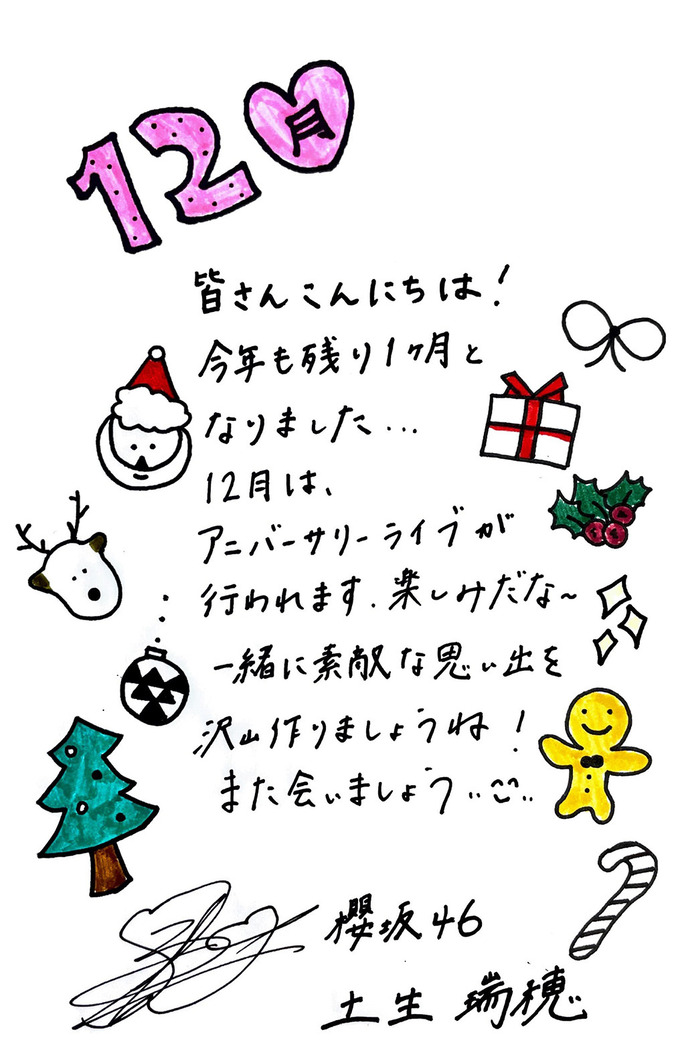 12月
皆さんこんにちは!
今年も残り1ヶ月と
なりました...
12月は、
アニバーサリーライブが
行われます.楽しみだな〜
一緒に素敵な思い出を
沢山作りましょうね!
また会いましょう
櫻坂46
土生瑞穂